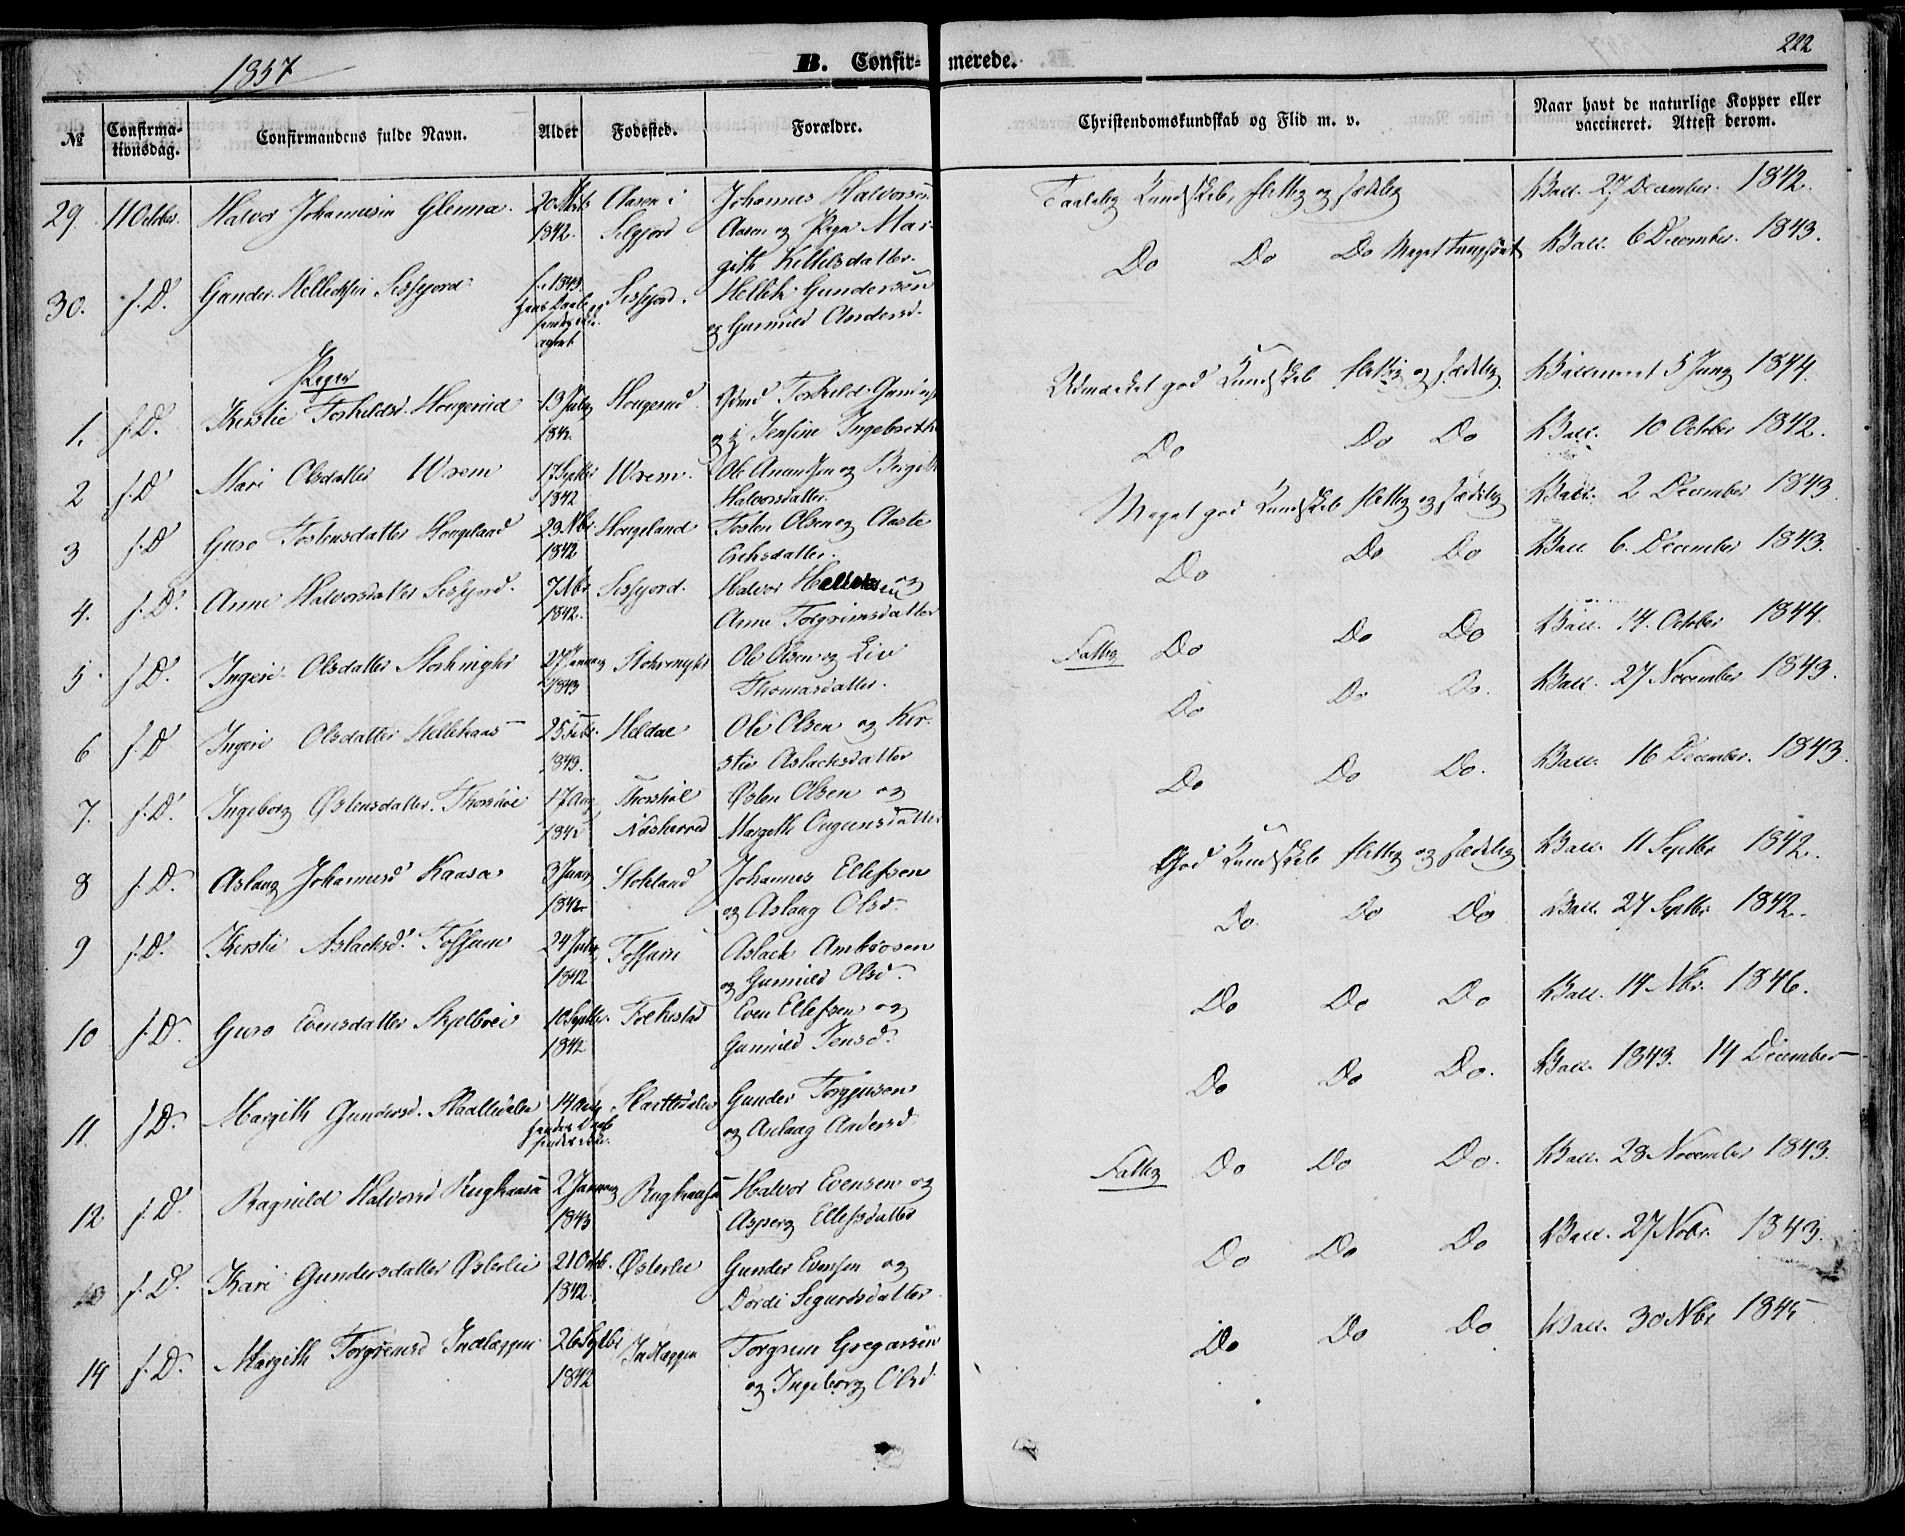 1857
B. Confir- merede.
222
№ Confirma-tionsdag. Confirmandens fulde Navn. Alder Fødested. Forældre. Christendomskundskab og Flid m. v. Naar havt de naturlige Kopper eller vaccineret. Attest derom.
29. 11 October. Halvor Johannesen Glenna. 20 1842. Aasen i Selgjord Johannes Halvorsen Aasen og Pigen Margith Kittilsdatter. Taalelig Kundskab, flittig og sædelig Vacc. 27 December. 1842.
30. s. D. Gunder Hellecksen Sisjord f. 1843. Sisjord. Hellek Gundersen og Gunnild Andersd. Do Do Do Meget tungsindt Vacc. 6 December. 1843.
Piger
1. s. D. Kirstie Torkildsd. Hougerud 13 July 1842. Hougerud Torkild og Jensine Ingebreth Udmærket god Kundskab flittig og sædelig Vaccineret 5 Juny 1844.
2 s. D. Mari Olsdatter Wrem 17 Septbr 1842 Wrem. Ole Anundsen og Birgith Halvorsdatter. Do Do Do Vacc. 10 October 1842.
3 s. D. Guro Tostensdatter Hougeland 29 Nbr 1842 Hougeland Tosten Olsen og Aaste Eriksdatter. Meget god Kundskab flittig og sædelig Vacc. 2 December 1843
4. s. D. Anne Halvorsdatter Sisjord. 7 Nbr 1842. Sisjord. Halvor Helleksen og Anne Torgrimsdatter Do Do Do Vacc. 6. December 1843.
5 s. D. Ingeri Olsdatter 27 January 1843 Ole Olsen og Liv Thomasdatter. Fattig Do Do Do Vacc. 14. October 1844.
6 s. D. Ingeri Olsdatter Hellekaas 25 Febr. 1843. Heldal Ole Olsen og Kirstie Aslacksdatter Do Do Do. Vacc. 27 November 1843.
7. s. D. Ingeborg Østensdatter Thorshol 17 Aug 1842 Thorshol Nøsherred Østen Olsen og Margith Do Do Do. Vacc. 16 December. 1843.
8 s. D. Aslaug Johannesd. Kaasa 3 Juny 1842 Stokland Johannes Ellefsen og Aslaug Olsd. God Kundskab flittig og sædelig Vacc. 11 Septbr 1842.
9 s. D. Kirstie Aslacksd. Tofsum 24 July 1842 Tofsum Aslack Ambrosen og Gunnild Olsd. Do. Do Do Vacc. 27 Septbr 1842.
10 s. D. Guro Evensdatter 10 Septbr. 1842 Folkestad Even Ellefsen og Gunnild Jensd. Do Do Do Vacc. 14 Nbr. 1846.
11. s. D. Margith Gundersd. Slaattedalen 14 Aug Slaattedalen Gunder Torjusen og Aslaug Andersd. Do Do Do. Vacc. 1843. 14 December
12 s. D. Ragnild Halvorsd Rughaasen 2 January 1843 Rughaasen Halvor Evensen og Asperg Ellefsdatter Fattig Do Do Do. Vacc. 28 November 1843.
13 s. D. Kari Gundersdatter Østerlie 21 Octb. 1842. Østerlie Gunder Evensen og Dordi Sigurdsdatter Do Do Do Vacc. 27 Nobr. 1843.
14 s. D. Margith Torgrimsd Indlæggen 26 Septbr 1842 Indlæggen Torgrim Gregarsen og Ingeborg Olsd Do Do Do Vacc. 30 Nbr 1845